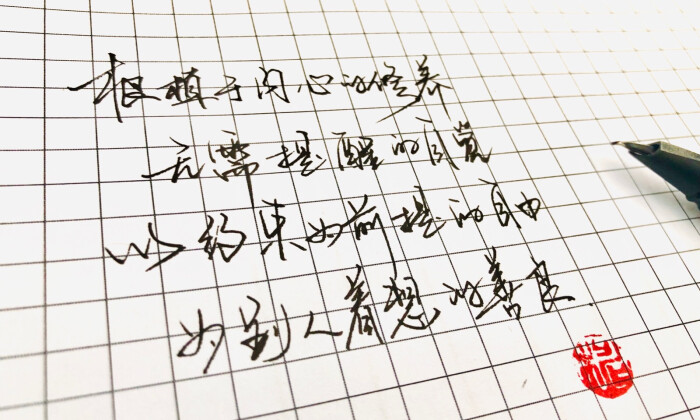 根植于内心的修养
无需提醒的自觉
以约束为前提的自由
为别人着想的善良